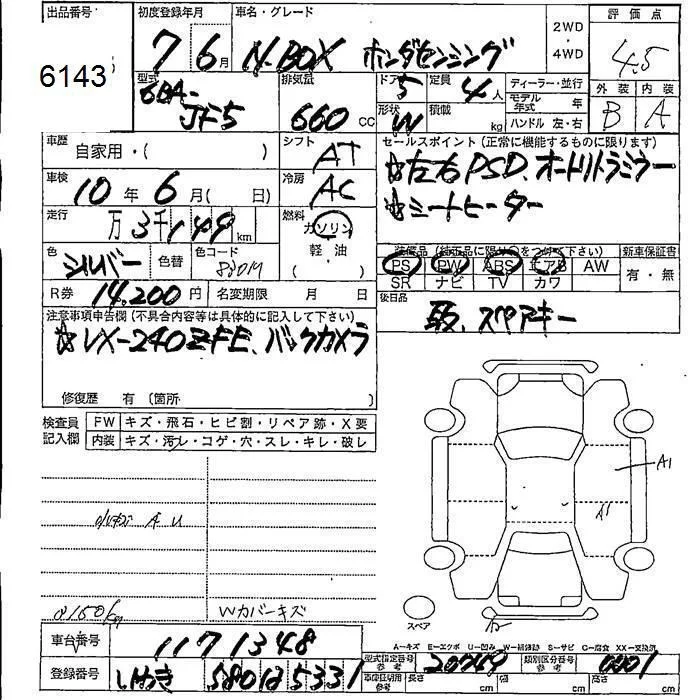 出品番号 初度登録年月 車名・グレード 2WD ・ 4WD 評価点
6143 7年 6月 N-BOX ホンダセンシング 4.5
型式 6BA-JF5 排気量 660 cc ドア 5 定員 4人 ディーラー・並行 外装 内装
形状 W 積載 kg モデル年式 年 B A
ハンドル 左・右
車歴 自家用・( ) シフト AT セールスポイント (正常に機能するものに限ります)
車検 10年 6月( 日) 冷房 AC ☆左右PSD、オートリトラミラー
☆シートヒーター
走行 万 3千149km 燃料 ガソリン 軽・油 ( )
色 シルバー 色替 色コード 装備品 (純正品に限り○をつけて下さい) 新車保証書
PS PW ABS エアB AW 有・無
SR ナビ TV カワ
R券 14,200円 名変期限 月 日 後日品
注意事項申告欄 (不具合内容等は具体的に記入して下さい) 取、スペアキー
☆VX-240ZFE、バックカメラ
修復歴 有 (箇所 )
検査員記入欄 FW キズ・飛石・ヒビ割・リペア跡・X要
内装 キズ・汚レ・コゲ・穴・スレ・キレ・破レ
A1
A1
Wカバーキズ
スペア
A=キズ E=エクボ U=凹み W=補修跡 S=サビ C=腐食 XX=交換済
車台番号 1171348 型式指定番号 参考 類別区分番号 参考 0001
登録番号 580 は 5331 車庫証明用 参考 長さ cm 幅 cm 高さ cm